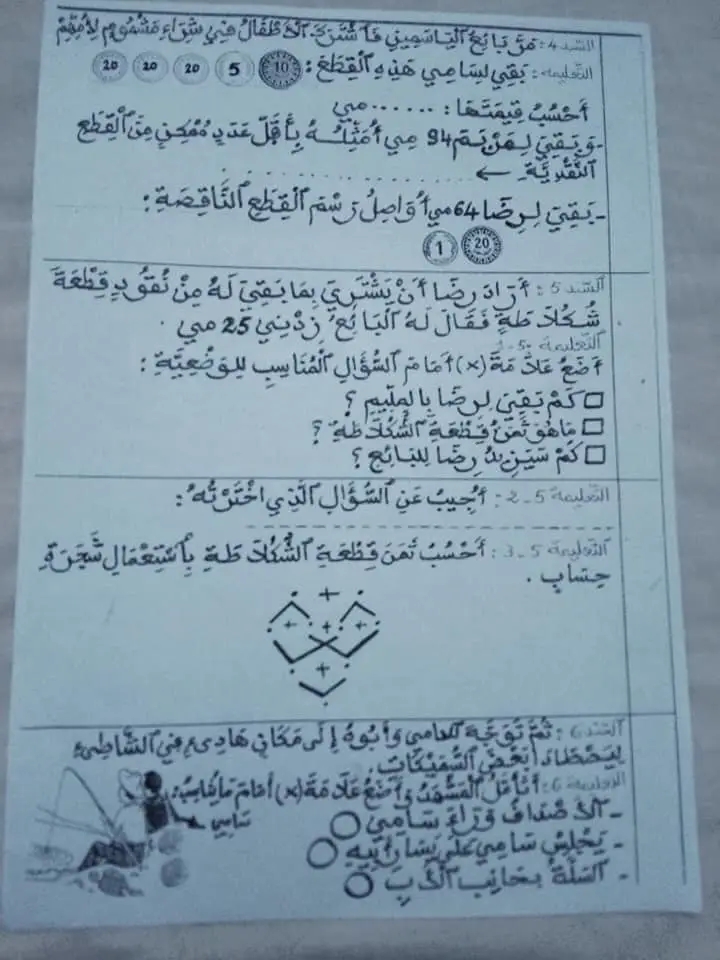 السند 4: مَرَّ بَائِعُ ٱلْيَاسَمِينِ فَٱشْتَرَكَ ٱلْأَطْفَالُ فِي شِرَاءِ مَشْمُومٍ لِأُمِّهِمْ
التعليمة: بَقِيَ لِسَامِي هَذِهِ ٱلْقِطَعُ: 10 5 20 20 20
أَحْسُبُ قِيمَتَهَا: ...... مي
-وَ بَقِيَ لِـمَرْيَم 94 مي أُمَثِّلُـهُ بِأَقَلِّ عَدَدٍ مُمْكِنٍ مِنَ ٱلْقِطَعِ
ٱلنَّقْدِيَّةِ ←
- بَقِيَ لِـرِضَا 64 مي أُوَاصِلُ رَسْمَ ٱلْقِطَعِ ٱلنَّاقِصَةِ:
1 20
السند 5: أَرَادَ رِضَا أَنْ يَشْتَرِيَ بِمَا بَقِيَ لَهُ مِنْ نُقُودٍ قِطْعَةَ
شُكُلَاطَةٍ فَقَالَ لَهُ ٱلْبَائِعُ زِدْنِي 25 مي
التعليمة 5-1
أَضَعُ عَلَامَةَ (x) أَمَامَ ٱلسُّؤَالِ ٱلْمُنَاسِبِ لِلْوَضْعِيَّةِ:
□ كَمْ بَقِيَ لِرِضَا بِالْمِلِّيمِ ؟
□ مَا هُوَ ثَمَنُ قِطْعَةِ ٱلشُّكُلَاطَةِ ؟
□ كَمْ سَيَزِيدُ رِضَا لِلْبَائِعِ ؟
التعليمة 5-2: أُجِيبُ عَنِ ٱلسُّؤَالِ ٱلَّذِي ٱخْتَرْتُهُ:
التعليمة 5-3: أَحْسُبُ ثَمَنَ قِطْعَةِ ٱلشُّكُلَاطَةِ بِٱسْتِعْمَالِ شَجَرَةِ
حِسَابٍ.
+
+ + +
+
السند 6: ثُمَّ تَوَجَّهَ سامي وَأَبُوهُ إِلَى مَكَانٍ هَادِئٍ فِي ٱلشَّاطِئِ
لِيَصْطَادَا بَعْضَ ٱلسُّمَيْكَاتِ.
التعليمة 6: أَتَأَمَّلُ ٱلْمَشْهَدَ وَ أَضَعُ عَلَامَةَ (x) أَمَامَ مَا يُنَاسِبُ:
سامي
- ٱلْأَصْدَافُ وَرَاءَ سَامِي ○
- يَجْلِسُ سَامِي عَلَى يَسَارِ أَبِيهِ ○
- ٱلسَّلَّةُ بِجَانِبِ ٱلْأَبِ ○